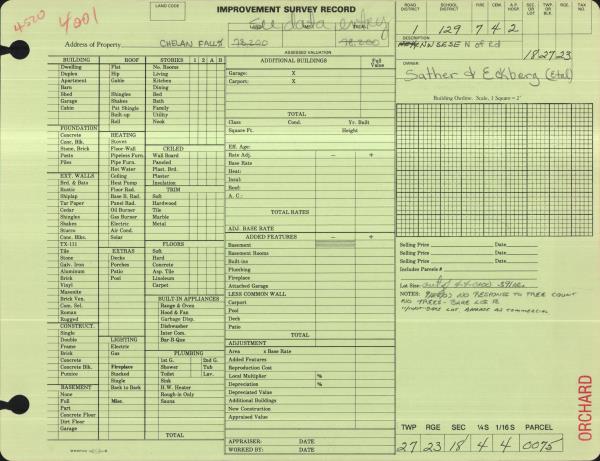 LAND CODE
IMPROVEMENT SURVEY RECORD
4520
4201
See data entry
Address of Property CHELAN FALLS 78.200 78.200
ASSESSED VALUATION
ROAD DISTRICT SCHOOL DISTRICT AP. HOSP. SEC OR LOT TWP OR BLK RGE. TAX NO.
1 129 7 4 2
DESCRIPTION
NW SE SE N of Rd
18 27 23
OWNER
Sather & Eckberg (Etal)
Building Outline. Scale, 1 Square = 2'
BUILDING STORIES 1 2 A B
Dwelling Flat No. Rooms
Duplex Hip Living
Apartment Gable Kitchen
Barn Dining
Shed Shingles Bed
Garage Shakes Bath
Cabin Pat Shingle Family
Built-up Utility
Roll Nook
FOUNDATION
Concrete HEATING
Conc. Blk. Stoves CEILED
Stone, Brick Floor-Wall Wall Board
Posts Pipeless Furn. Paneled
Piles Pipe Furn. Plast. Brd.
Hot Water Plaster
EXT. WALLS Ceiling Insulation
Brd. & Bats Heat Pump TRIM
Rustic Floor Rad. Soft
Shiplap Base B. Rad. Hardwood
Tar Paper Panel Rad. Tile
Cedar Oil Burner Marble
Shingles Gas Burner Metal
Shakes Electric
Stucco Air Cond.
Conc. Blks. Solar
TX-111 FLOORS
Tile EXTRAS Soft
Stone Decks Hard
Galv. Iron Porches Concrete
Aluminum Patio Asp. Tile
Brick Pool Linoleum
Vinyl Carpet
Masonite
Brick Ven. BUILT-IN APPLIANCES
Com. Sel. Range & Oven
Roman Hood & Fan
Rugged Garbage Disp.
CONSTRUCT. Dishwasher
Single Inter Com.
Double LIGHTING Bar-B-Que
Frame Electric
Brick Gas PLUMBING
Concrete 1st G. 2nd G.
Concrete Blk. Fireplace Shower Tub
Pumice Stacked Toilet Lav.
Single Sink
BASEMENT Back to Back H.W. Heater
None Rough-in Only
Full Misc. Sauna
Part
Concrete Floor
Dirt Floor
Garage
TOTAL
ADDITIONAL BUILDINGS Full Value
Garage: X
Carport: X
TOTAL
Class Cond. Yr. Built
Square Ft. Height
Eff. Age:
Rate Adj. - +
Base Rate
Heat:
Insul:
Roof:
A. C.:
TOTAL RATES
ADJ. BASE RATE
ADDED FEATURES - +
Basement
Basement Rooms
Built-ins
Plumbing
Fireplace
Attached Garage
LESS COMMON WALL
Carport
Pool
Deck
Patio
TOTAL
ADJUSTMENT
Area x Base Rate
Added Features
Reproduction Cost
Local Multiplier %
Depreciation %
Depreciated Value
Additional Buildings
New Construction
Appraised Value
APPRAISER: DATE
WORKED BY: DATE
Selling Price Date
Selling Price Date
Selling Price Date
Includes Parcels #
Lot Size:
NOTES: NO RESPONSE TO TREE COUNT
NO TREES - BARE LOT
BARE LOT APPRAISE AS COMMERCIAL
ORCHARD
TWP RGE SEC ¼S 1/16 S PARCEL
27 23 18 4 4 0075